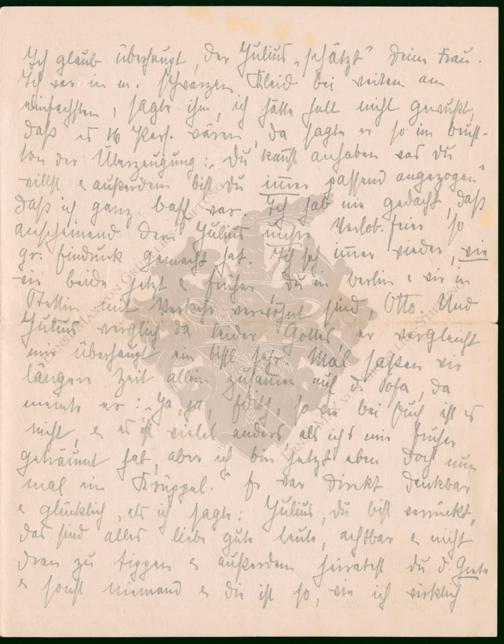 Ich glaub überhaupt, der Julius „schätzt" Deine Frau.
Ich war in m. schwarzen Kleid bei weitem am
einfachsten, sagte ihm, ich hätte halt nicht gewußt,
daß es 16 Pers. wären, da sagte er so im Brust-
ton der Überzeugung: „Du kannst anhaben was du
willst & außerdem bist Du immer passend angezogen"
daß ich ganz baff war. Ich hab nie gedacht, daß
anscheinend dem Julius unsre Verlob.feier so
gr. Eindruck gemacht hat. Ich seh immer wieder, wie
wir beide jetzt & früher, Du in Berlin & wir in
Stettin mit Verkehr verwöhnt sind Otto. Und
Julius verglich da leider Gottes, er vergleicht
mir überhaupt ein bißl sehr. Mal saßen wir
längere Zeit allein zusammen auf d. Sofa, da
meinte er: „Ja, ja, so wie bei Euch ist es
nicht, & es ist vieles anders, als ich's mir früher
geträumt hab, aber ich bin jetzt eben doch nun
mal ein Krüppel." Er war direkt dankbar
& glücklich, als ich sagte: Julius, Du bist verrückt,
das sind alles liebe gute Leute, achtbar & nicht
dran zu tippen & außerdem heiratest du d. Grete
& sonst niemand & die ist so, wie ich wirklich